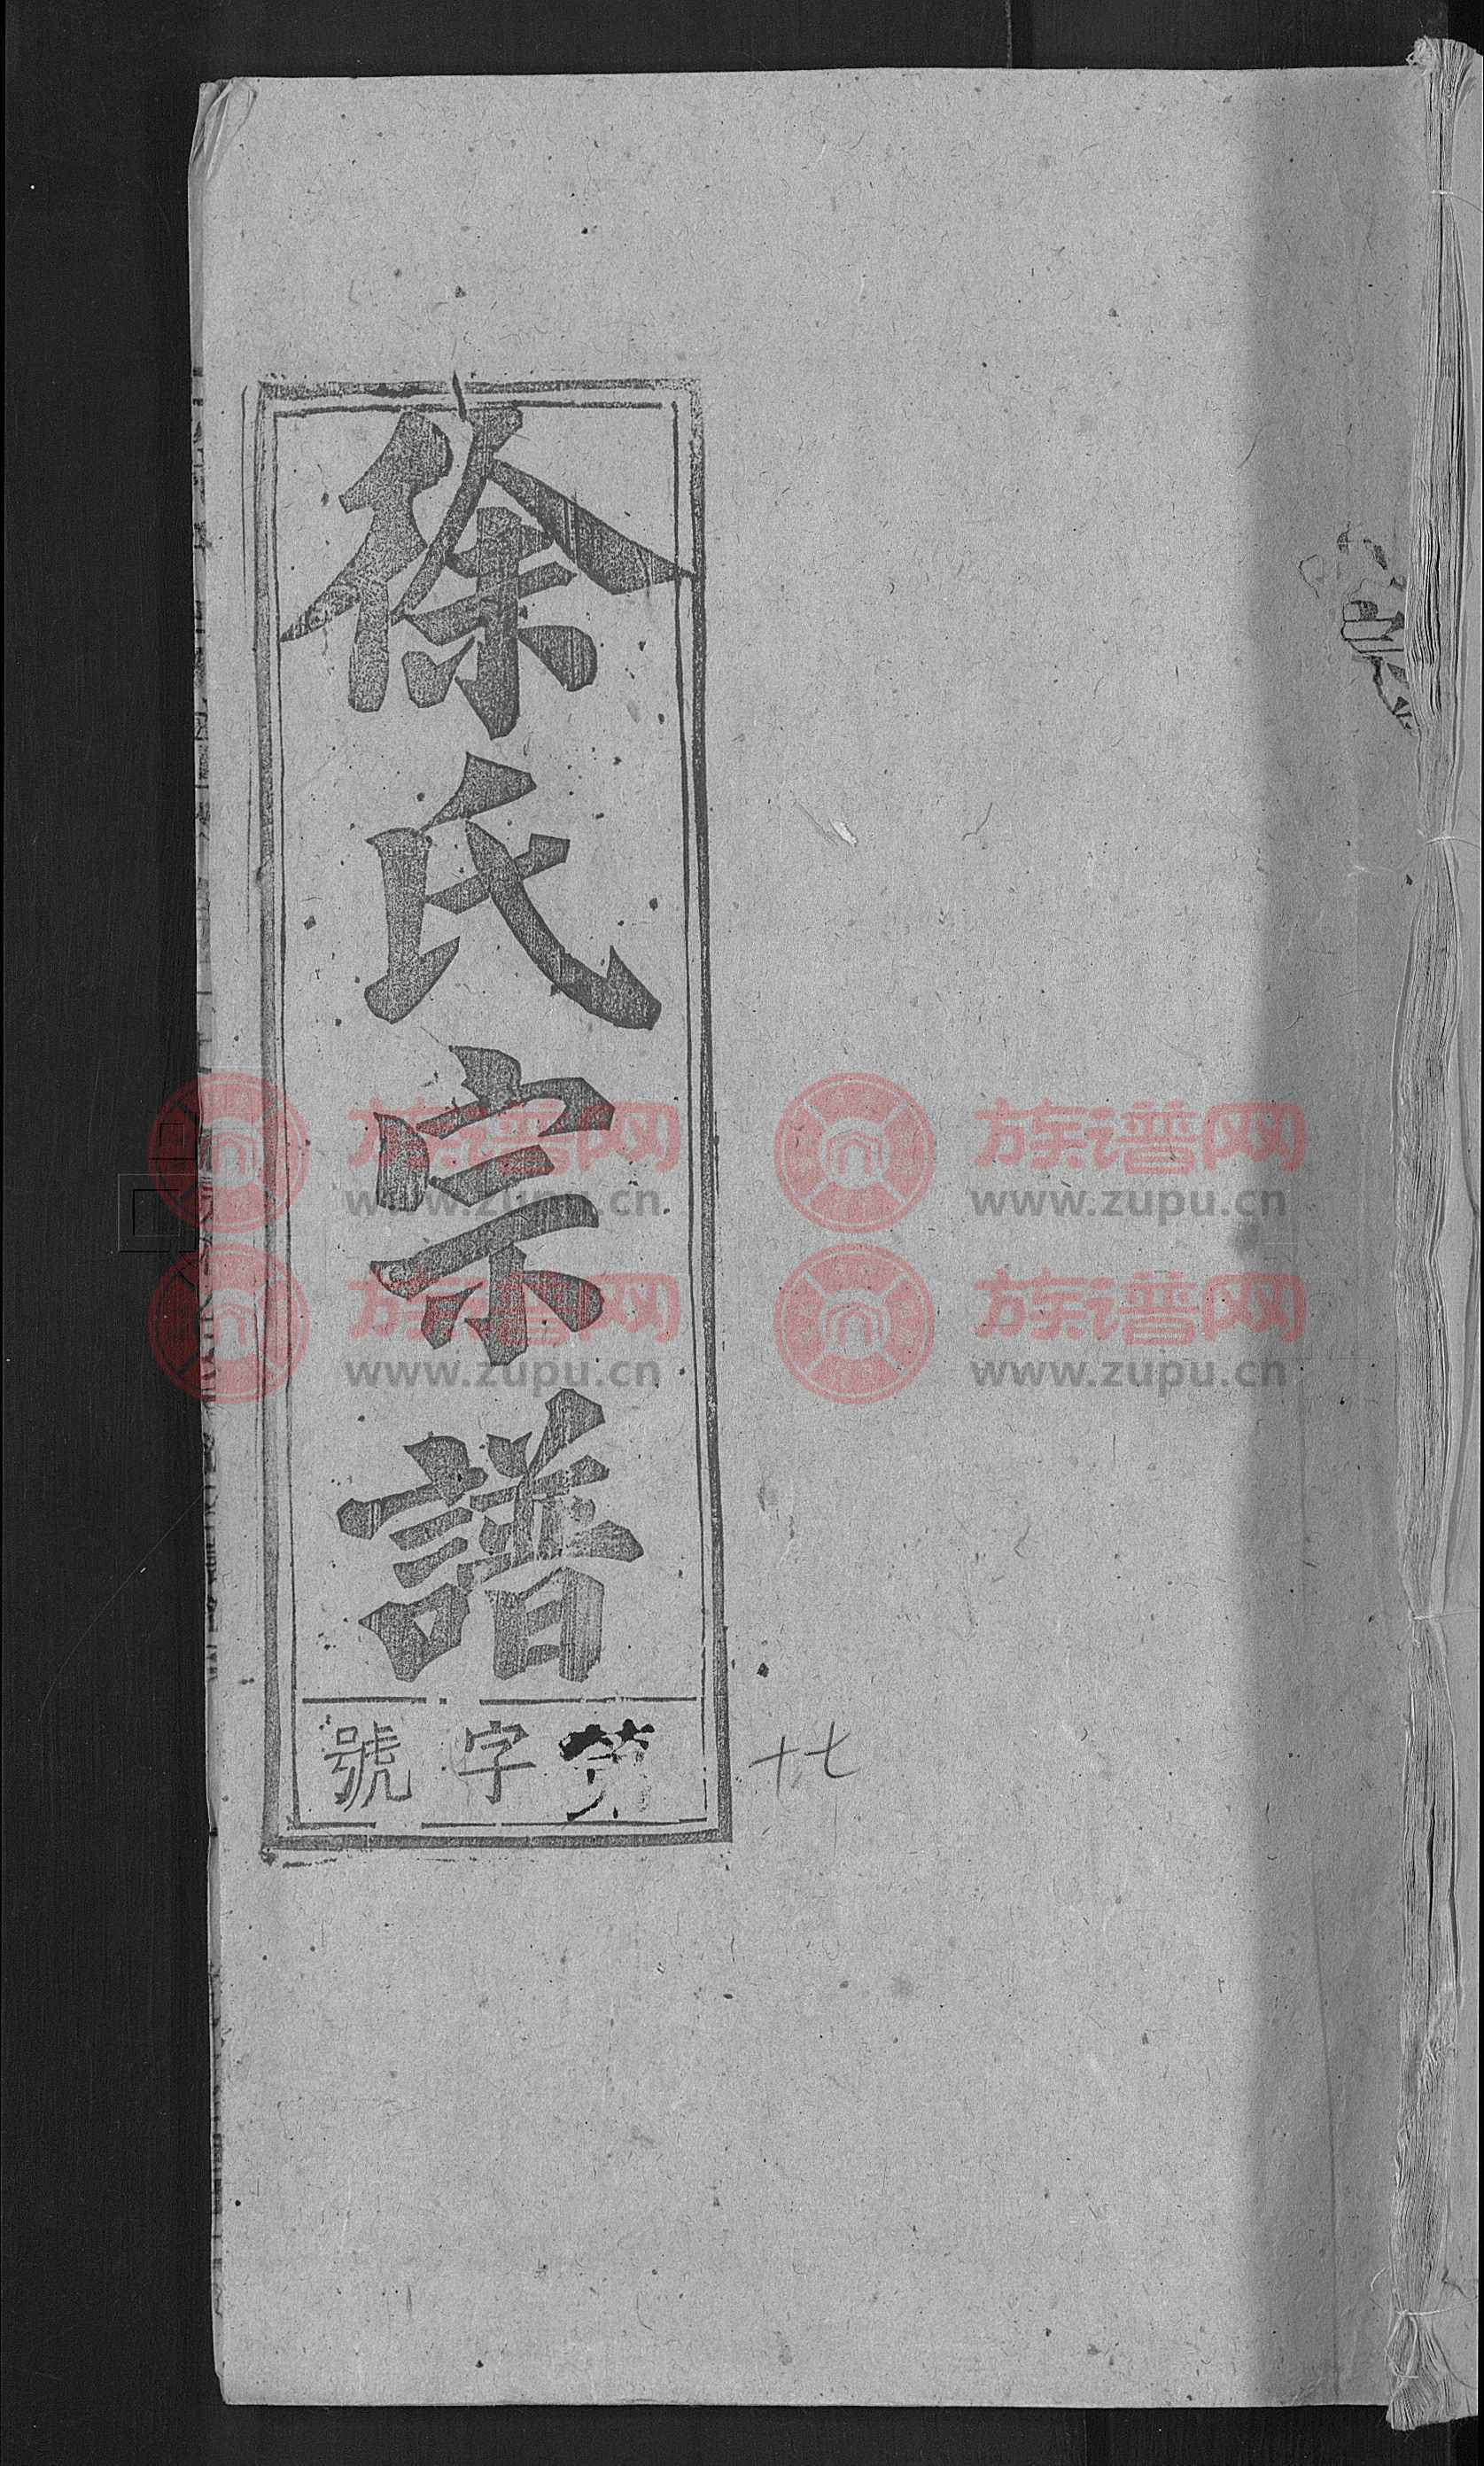 徐氏宗譜
字號
十七
族谱网
www.zupu.cn
族谱网
www.zupu.cn
族谱网
www.zupu.cn
族谱网
www.zupu.cn